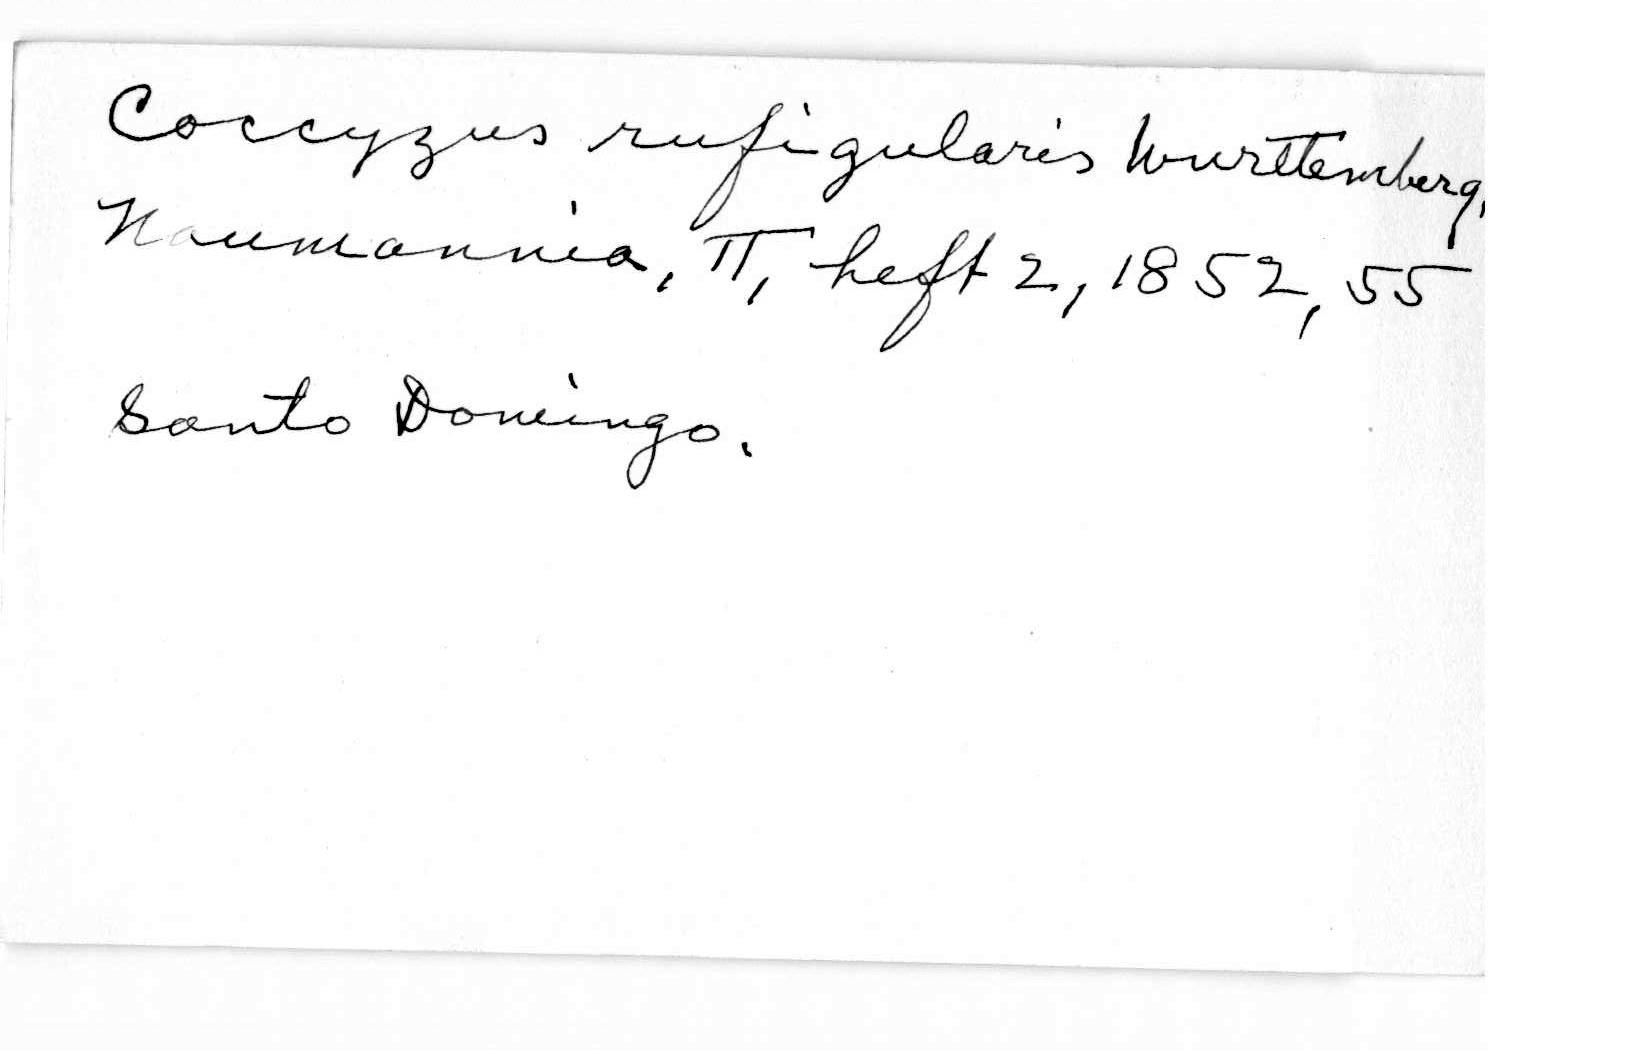 Coccyzus rufigularis Wurttemberg,
Naumannia, II, heft 2, 1852, 55
Santo Domingo.